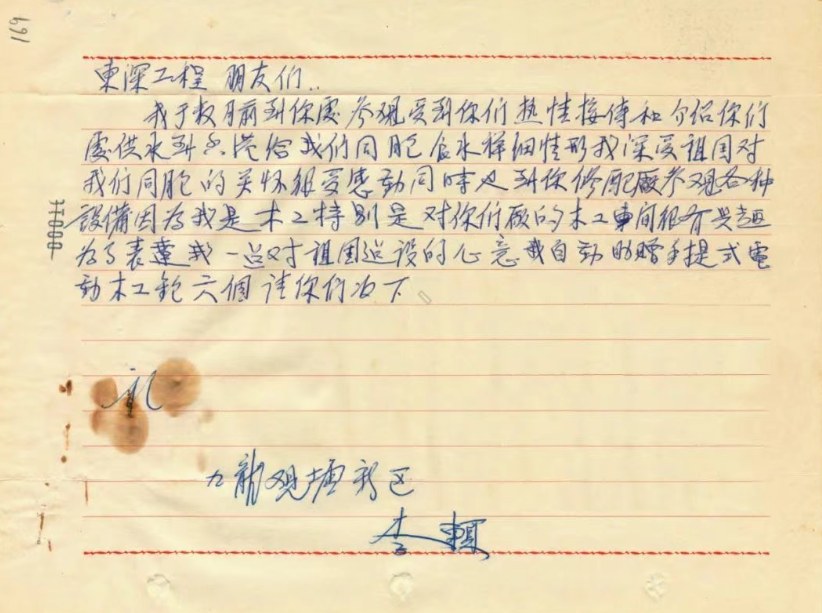 169
東深工程 朋友们..
我于数月前到你處参观受到你们热情接待和介绍你们
處供水到香港给我们同胞食水祥细情形我深受祖国对
我们同胞的关怀很受感动同時也到你修配廠参观各种
設備因为我是木工特别是对你们廠的木工車间很有兴趣
为了表達我一点对祖国建设的心意我自动的贈手提式電
动木工鉋六個请你们收下
礼
九龍观塘新区
李